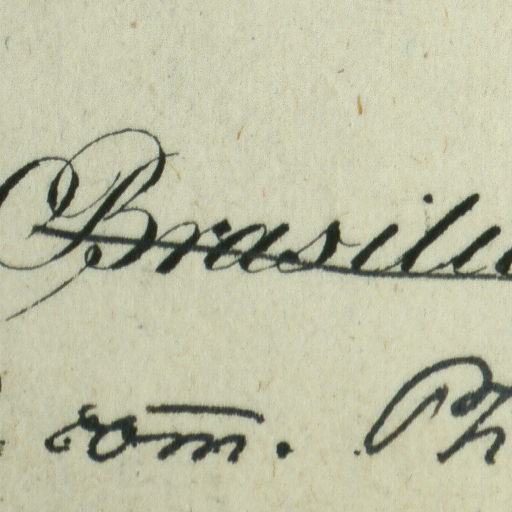 Brasilia
com. Ph